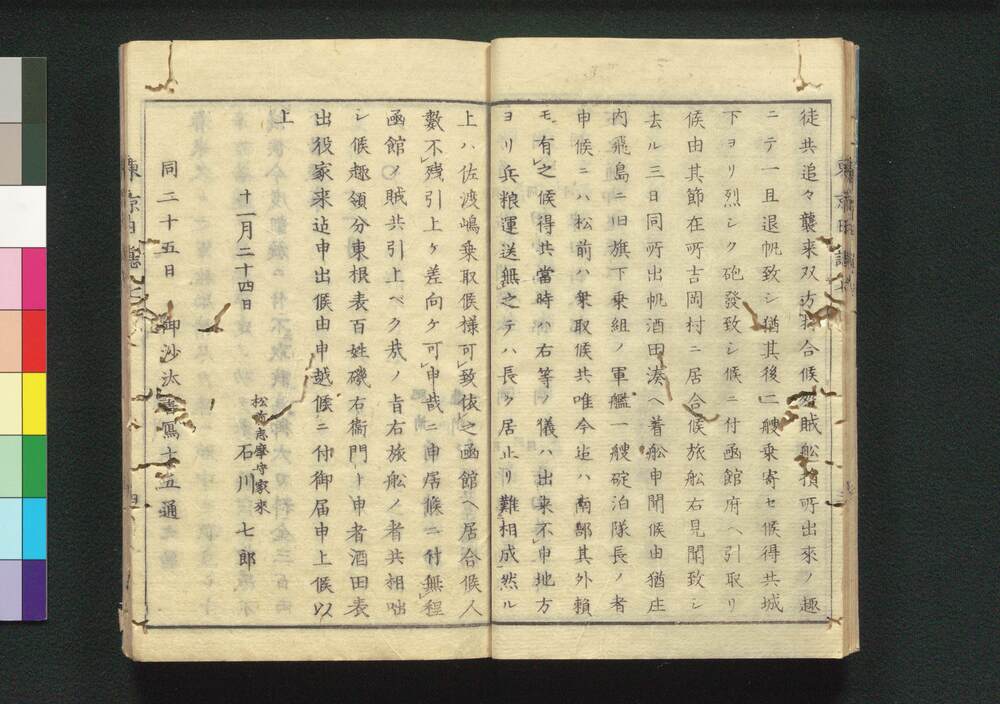 徒共追々襲来双方打合候処賊船損所出來ノ趣
ニテ一旦退帆致シ猶其後一艘乗寄セ候得共城
下ヨリ烈シク砲發致シ候ニ付函館府ヘ引取リ
候由其節在所吉岡村ニ居合候旅舩右見聞致シ
去ル三日同所出帆酒田湊ヘ着舩申聞候由猶庄
内飛島ニ旧旗下乗組ノ軍艦一艘碇泊隊長ノ者
申候ニハ松前ハ乗取候共唯今迠ハ南部其外賴
モ有之候得共當時ハ右等ノ儀ハ出来不申地方
ヨリ兵粮運送無之テハ長ク居止リ難相成然ル
上ハ佐渡嶋乗取候様可致依之函館ヘ居合候人
數不残引上ケ差向ケ可申哉ニ申居候ニ付無程
函館ノ賊共引上ベク哉ノ旨右旅舩ノ者共相咄
シ候趣領分東根表百姓磯右衞門ト申者酒田表
出役家来迠申出候由申越候ニ付御届申上候以
上
十一月二十四日
松前志摩守家來
石川七郎
同二十五日
御沙汰書寫十五通